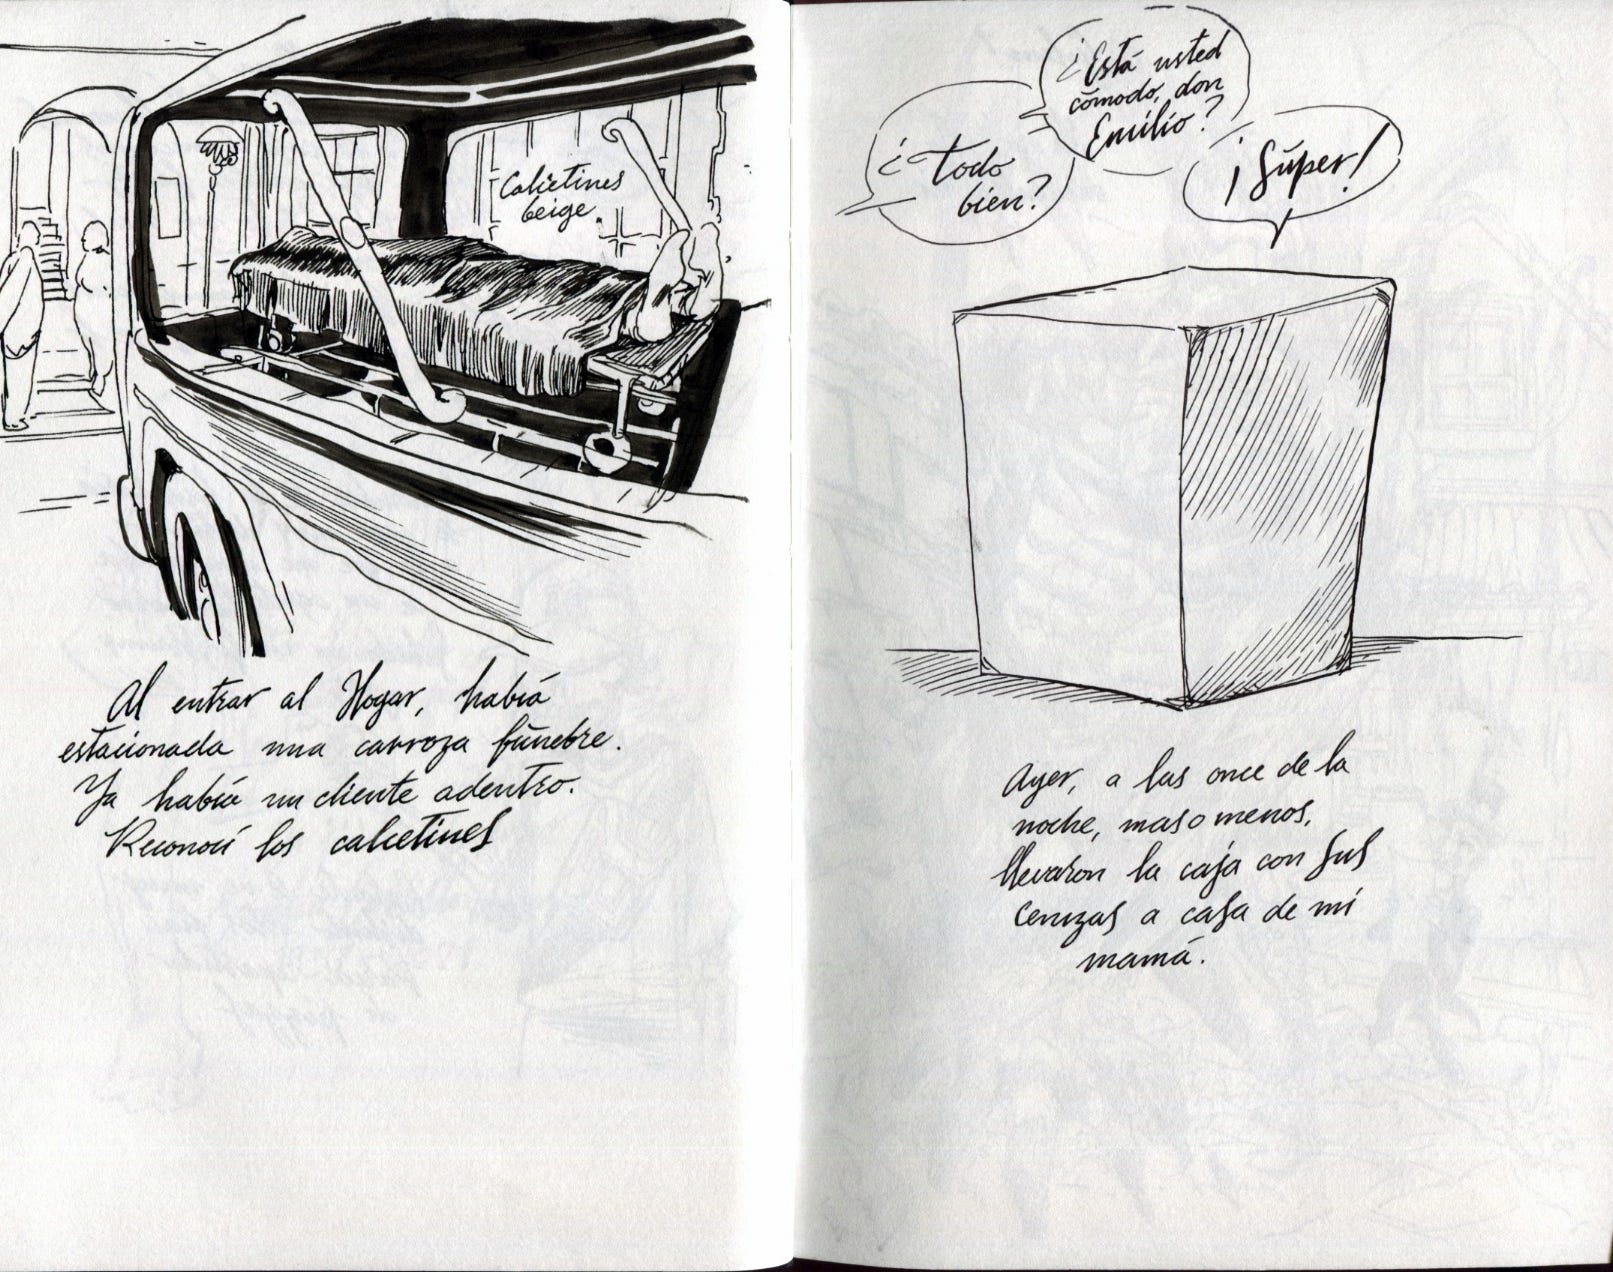 Calcetines
beige.
Al entrar al Hogar, había
estacionada una carroza fúnebre.
Ya había un cliente adentro.
Reconocí los calcetines
¿Todo
bien?
¿Está usted
cómodo, don
Emilio?
¡Súper!
Ayer, a las once de la
noche, mas o menos,
llevaron la caja con sus
cenizas a casa de mi
mamá.